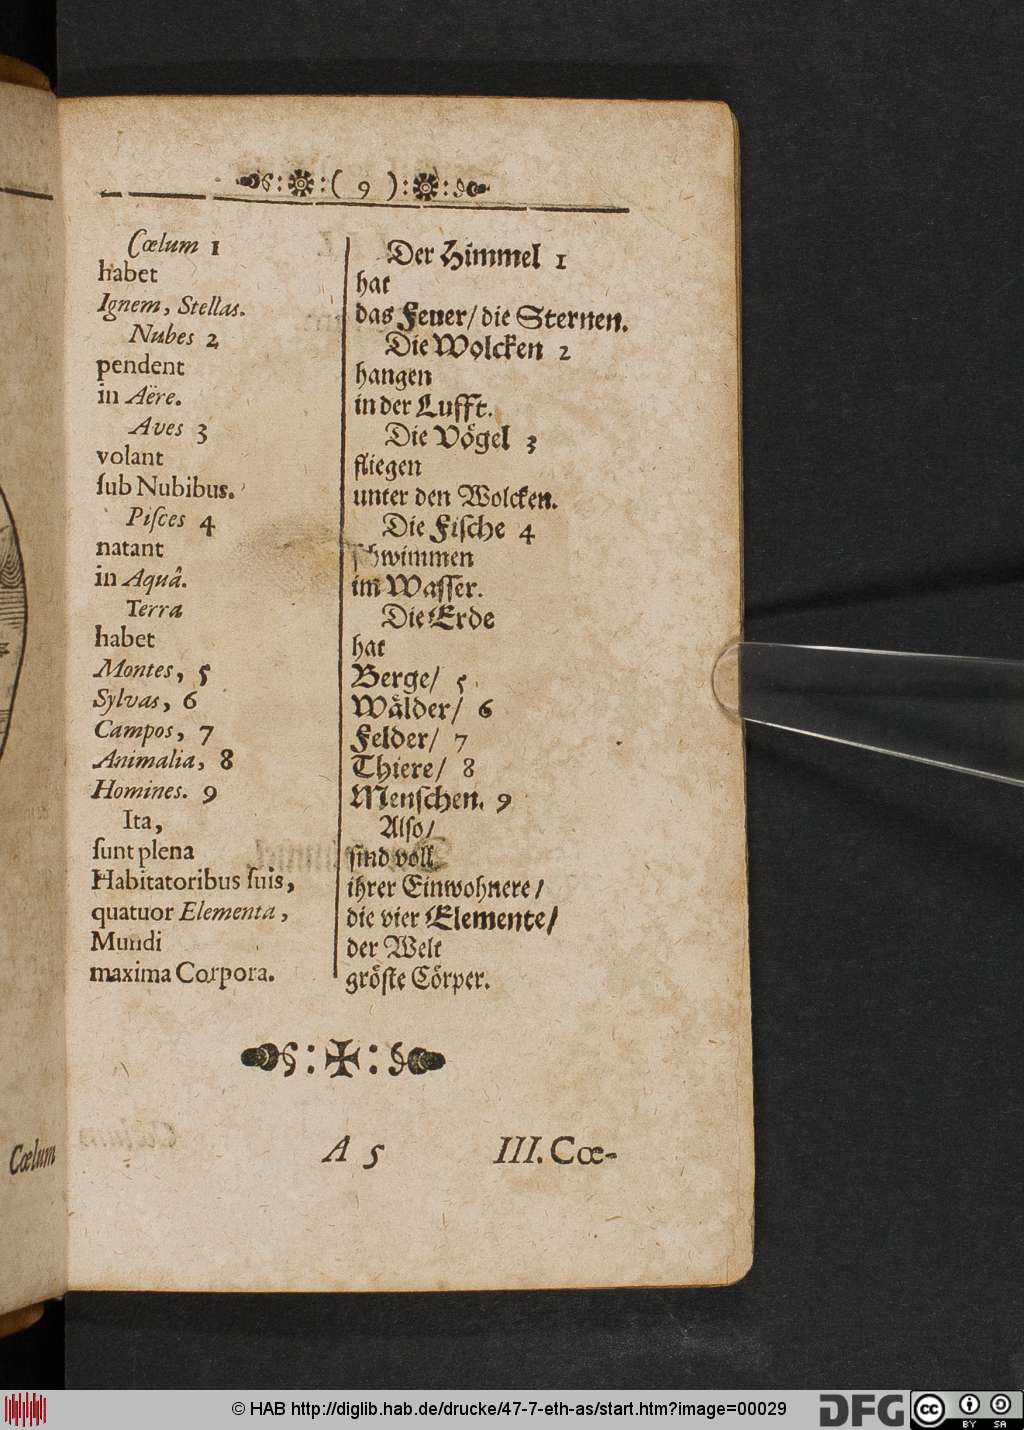 :( 9 ):
Cœlum 1
habet
Ignem, Stellas.
Nubes 2
pendent
in Aëre.
Aves 3
volant
ſub Nubibus.
Piſces 4
natant
in Aquâ.
Terra
habet
Montes, 5
Sylvas, 6
Campos, 7
Animalia, 8
Homines. 9
Ita,
ſunt plena
Habitatoribus ſuis,
quatuor Elementa,
Mundi
maxima Corpora.
Der Himmel 1
hat
das Feuer/ die Sternen.
Die Wolcken 2
hangen
in der Lufft.
Die Vögel 3
fliegen
unter den Wolcken.
Die Fiſche 4
ſchwimmen
im Waſſer.
Die Erde
hat
Berge/ 5
Wälder/ 6
Felder/ 7
Thiere/ 8
Menſchen. 9
Alſo/
ſind voll
ihrer Einwohnere/
die vier Elemente/
der Welt
gröſte Cörper.
A 5 III. Cœ-
Cœlum
© HAB http://diglib.hab.de/drucke/47-7-eth-as/start.htm?image=00029
DFG
cc
BY SA